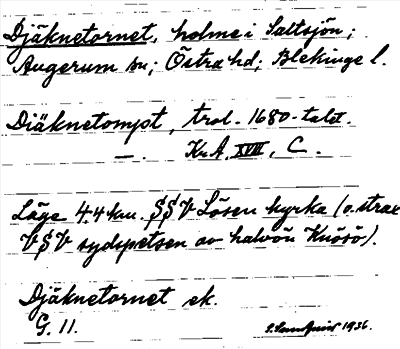 Djäknetornet, holme i Saltsjön;
Augerum sn; Östra hd; Blekinge l.
Diäknetornst, trol. 1680-talet.
—. Kr.A. XVIII, C.
Läge 4.4 km. SSV Lösen kyrka (o. strax
VSV sydspetsen av halvön Knösö).
Djäknetornet ek.
G. 11.
1936.